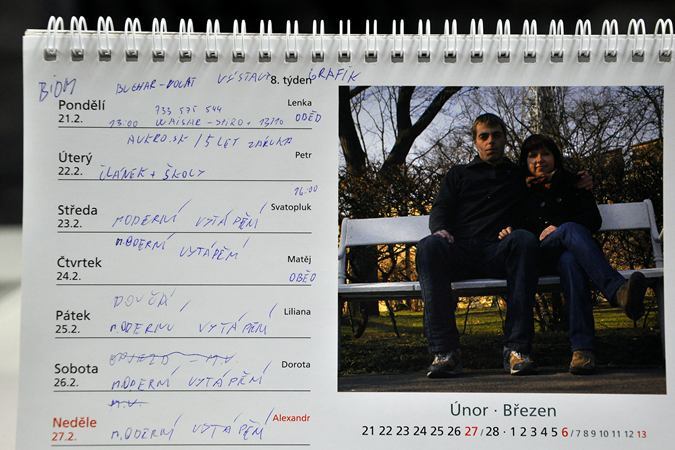 BIOM
BUCHAR-DOLÁT VÝSTAVY GRAFIK
8. týden
Pondělí
21.2.
Lenka
733 575 544
13:00 WAISAR - 13/10 OBĚD
AUKRO.SK / 5 LET ZÁRUKA
Úterý
22.2.
Petr
ČLÁNEK + ŠKOLY
16:00
Středa
23.2.
Svatopluk
MODERNÍ VYTÁPĚNÍ
Čtvrtek
24.2.
Matěj
MODERNÍ VYTÁPĚNÍ
OBĚD
Pátek
25.2.
Liliana
MODERNÍ VYTÁPĚNÍ
Sobota
26.2.
Dorota
MODERNÍ VYTÁPĚNÍ
Neděle
27.2.
Alexandr
M.V.
MODERNÍ VYTÁPĚNÍ
Únor · Březen
21 22 23 24 25 26 27 / 28 · 1 2 3 4 5 6 / 7 8 9 10 11 12 13